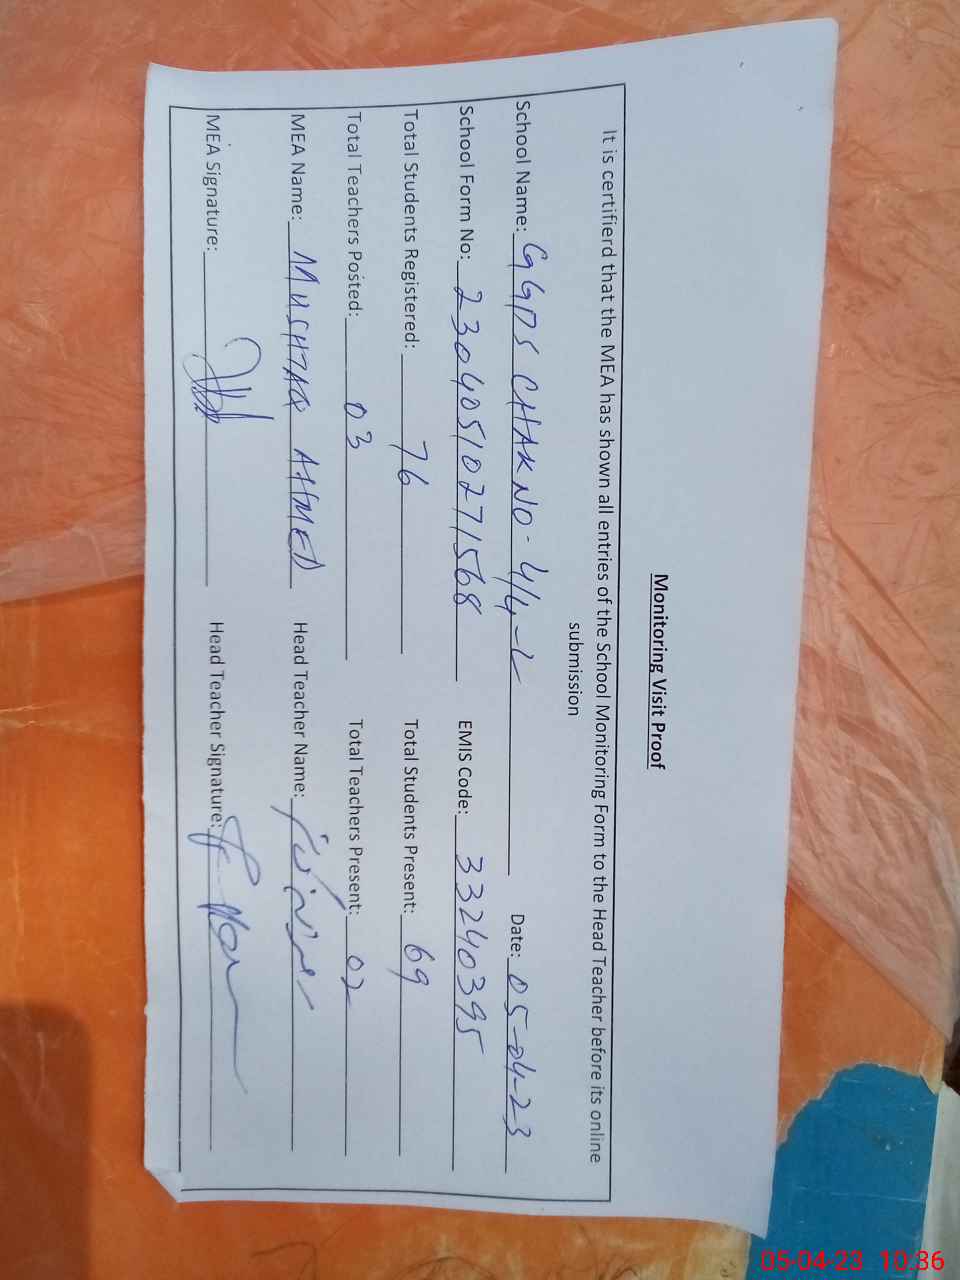 Monitoring Visit Proof
It is certifierd that the MEA has shown all entries of the School Monitoring Form to the Head Teacher before its online
submission
School Name: GGPS CHAK NO- 4/4-L Date: 05-04-23
School Form No: 23040510271568 EMIS Code: 33240395
Total Students Registered: 76 Total Students Present: 69
Total Teachers Posted: 03 Total Teachers Present: 02
MEA Name: MUSHTAQ AHMED Head Teacher Name:
MEA Signature: Head Teacher Signature:
05-04-23 10:36